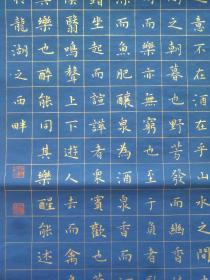 意不在酒在乎山水之
之朝暮也野芳發而幽香
而樂亦無窮也至于負者
而魚肥釀泉為酒泉香而
坐起而諠譁者眾賓歡也
翳鳴聲上下遊人去而禽
樂也醉能同其樂醒能述
龍湖之西畔